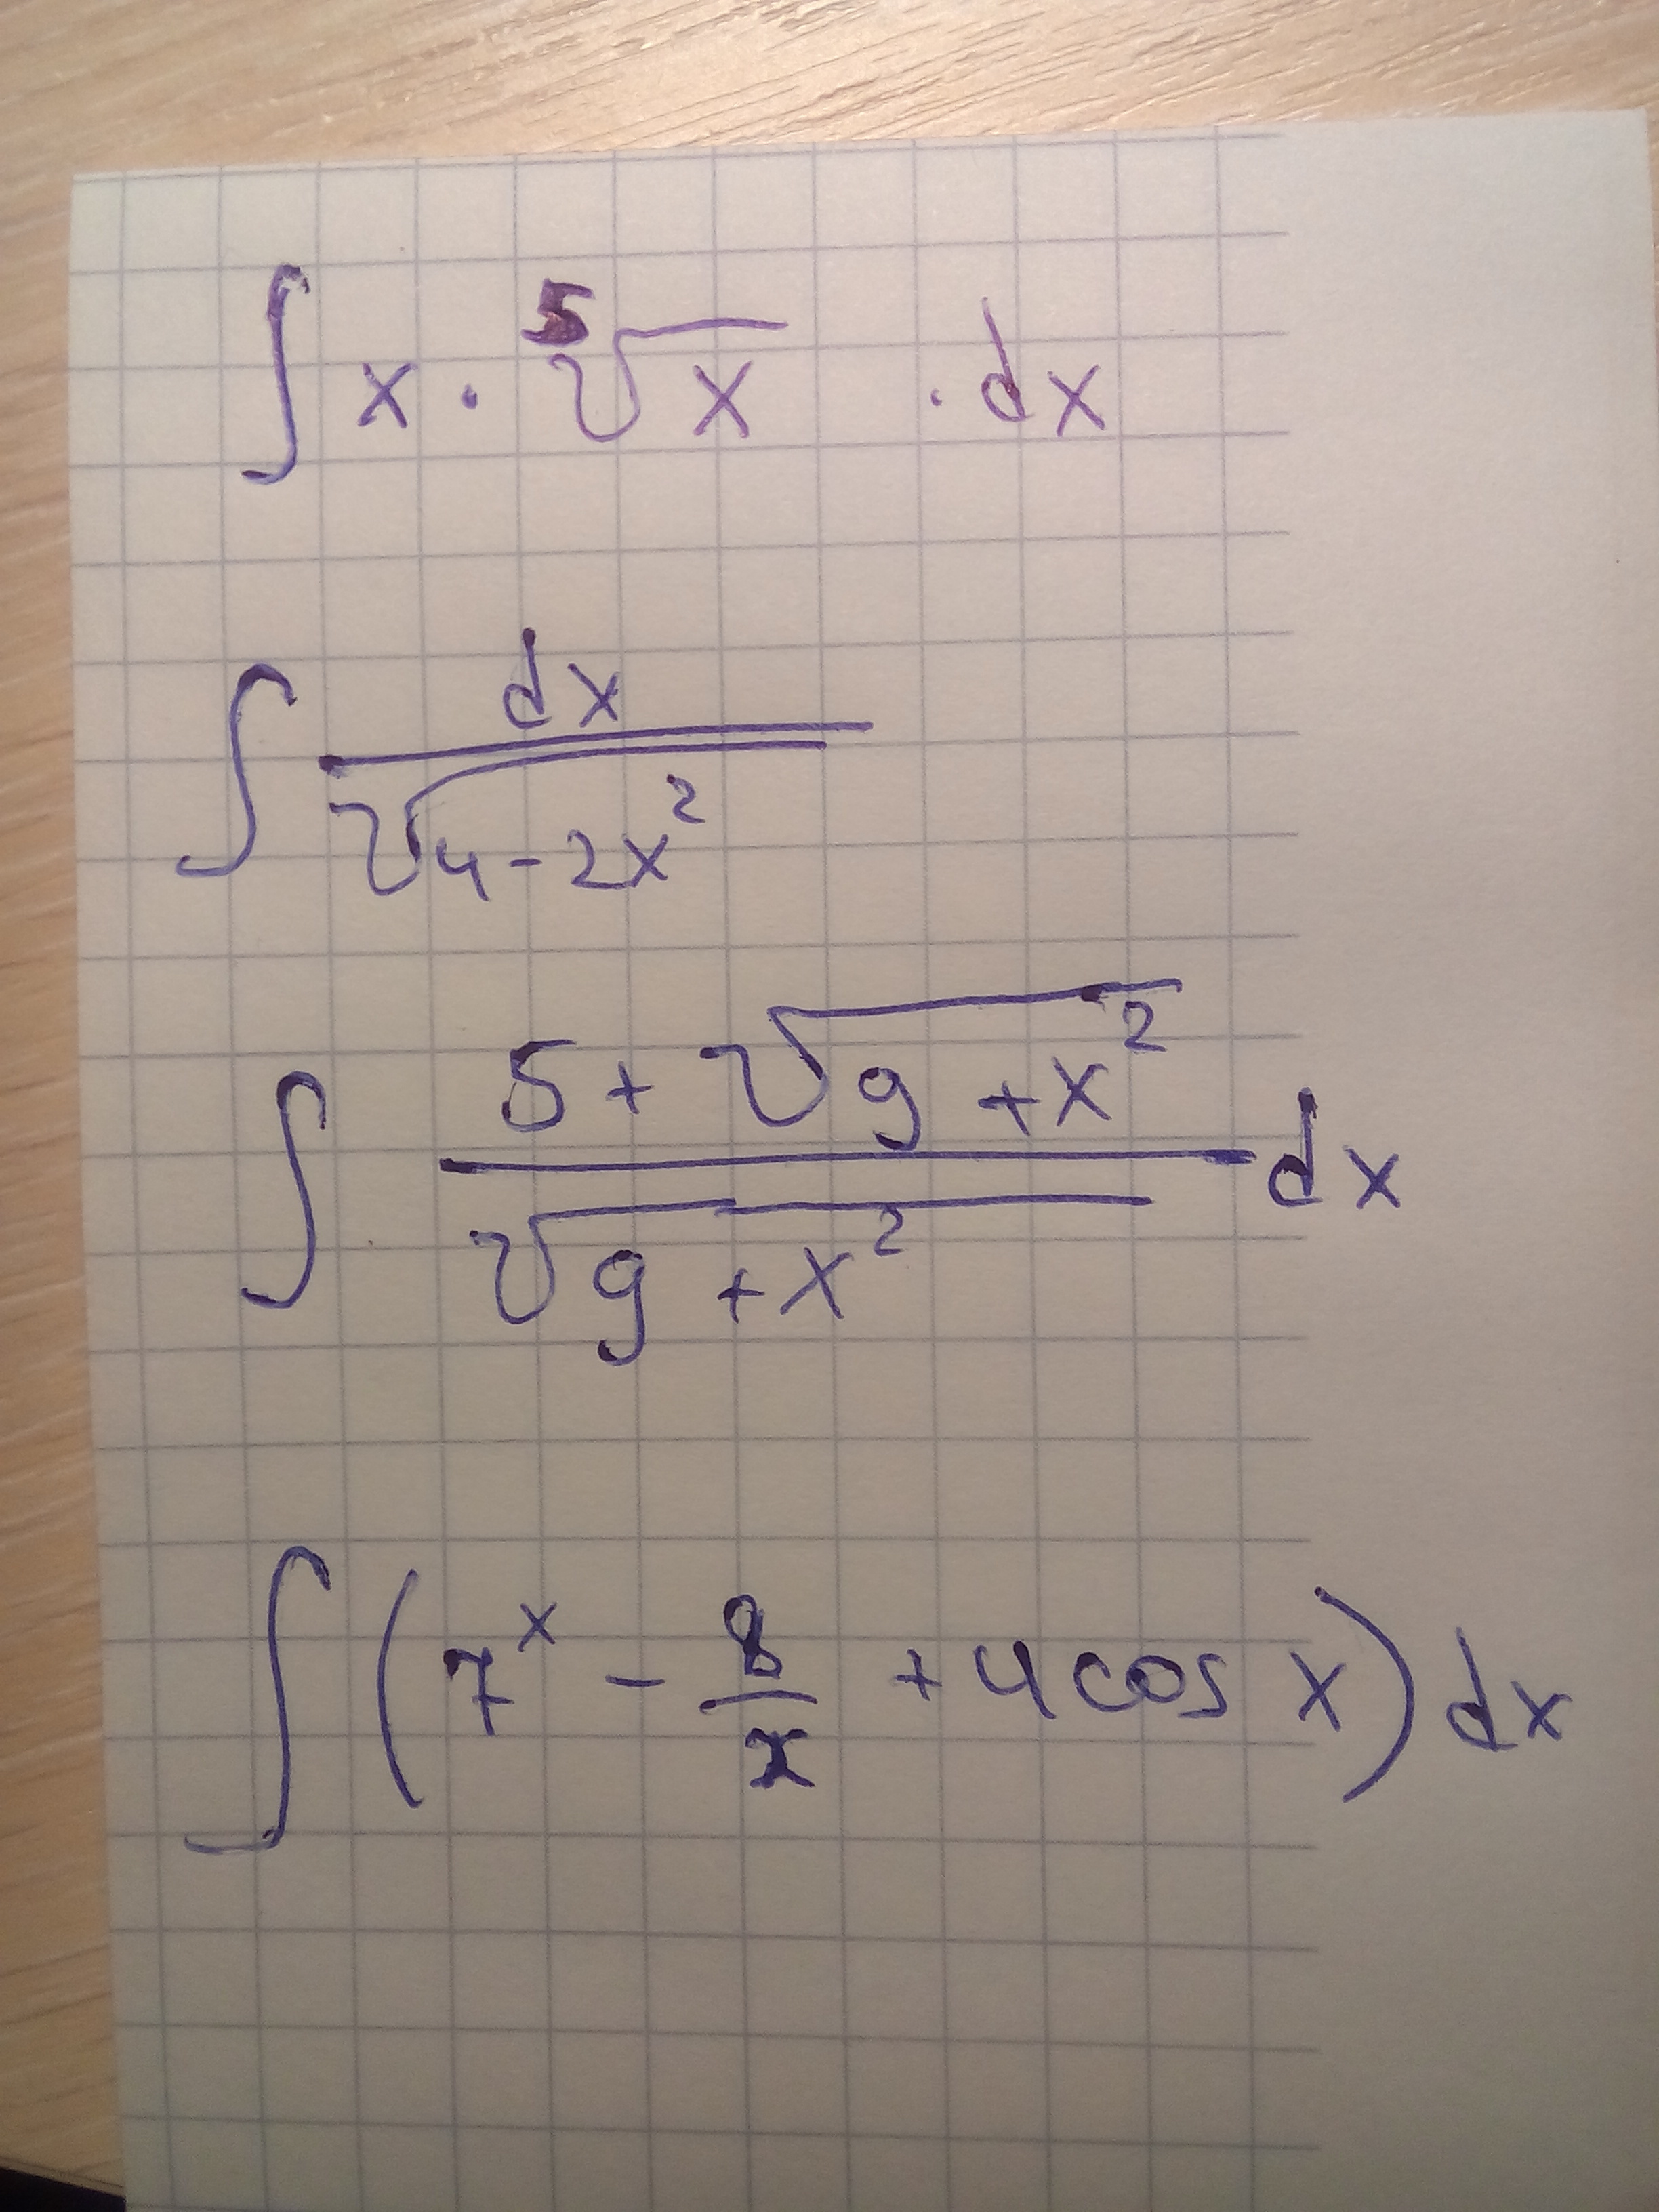 ∫ x · ⁵√x · dx
∫ dx / √(4-2x²)
∫ (5+√(9+x²)) / √(9+x²) dx
∫ (7ˣ - 8/x + 4cos x) dx